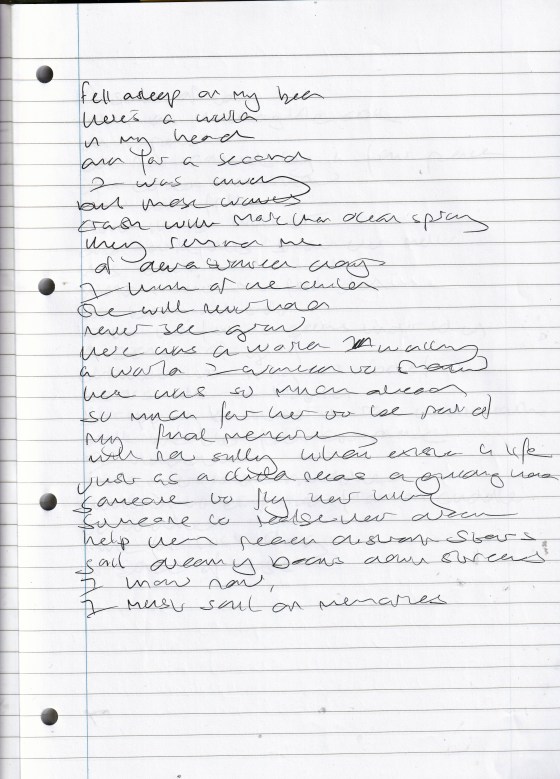 fell asleep on my bed
there's a world
in my head
and for a second
I was away
but those waves
crash with more than ocean spray
they remind me
of days
I think of the child
she will never hold
never see grow
there was a world waiting
a world I wanted to
there was so much ahead
so much for her to be part of
my final memories
with her
just as a child needs a guiding hand
someone to fly her
someone to her dream
help them reach distant stars
sail dreamy boats down streams
I know now,
I must sail on memories